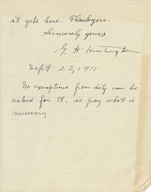 it gets here. Thank you.
Sincerely yours
G. H.
Sept 23, 1911
No exemptions from duty can be
asked for it, so pay what is
necessary.